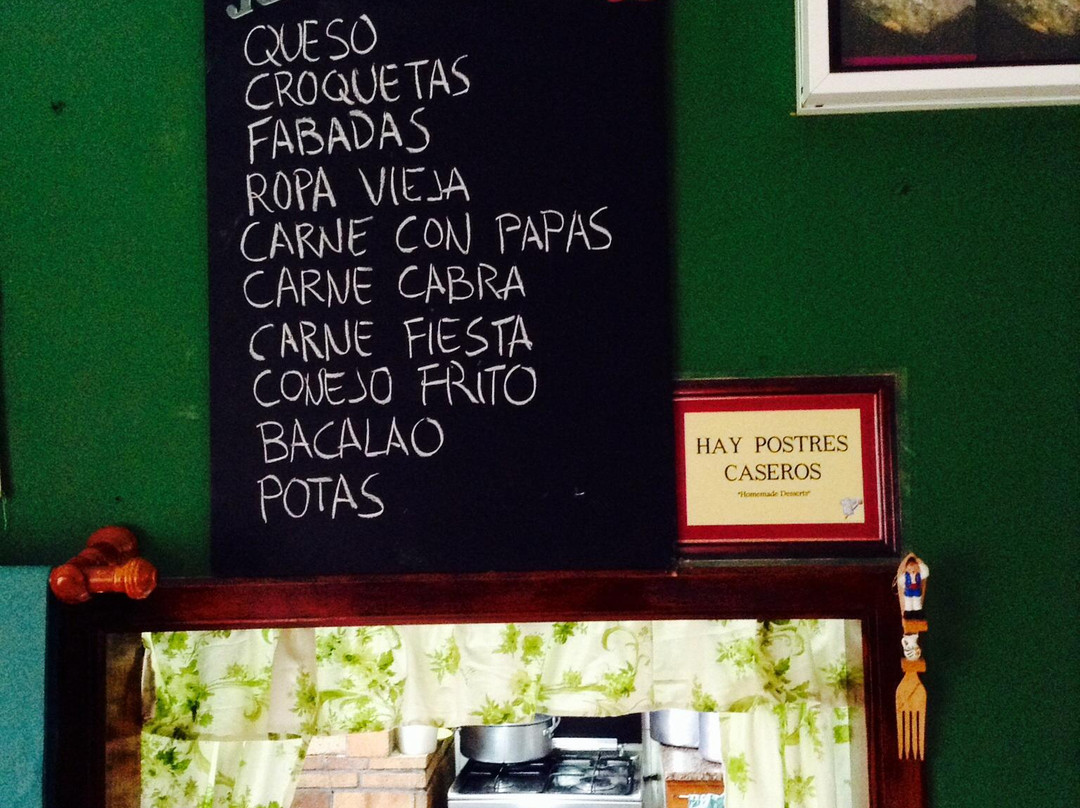 QUESO
CROQUETAS
FABADAS
ROPA VIEJA
CARNE CON PAPAS
CARNE CABRA
CARNE FIESTA
CONEJO FRITO
BACALAO
POTAS
HAY POSTRES
CASEROS
"Homemade Desserts"